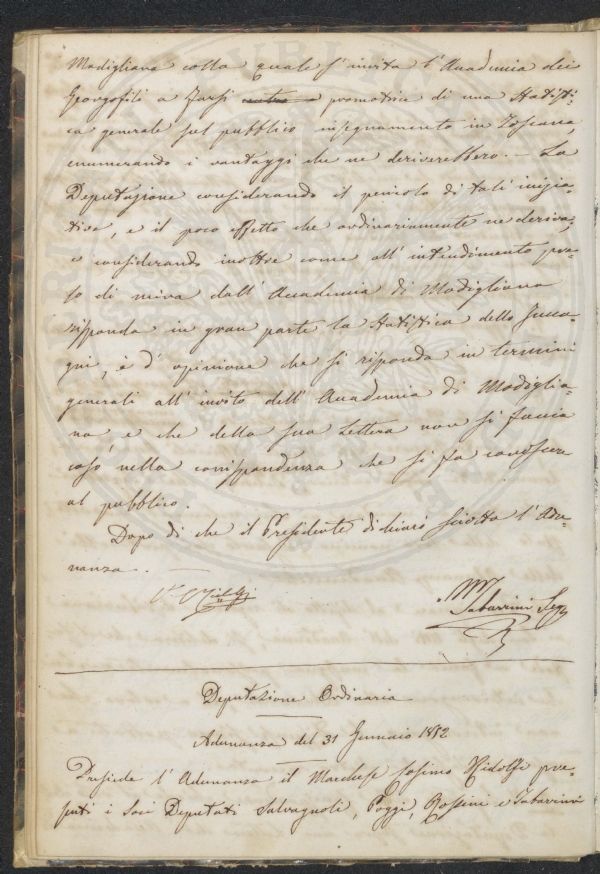 Modigliana colla quale s'invita l'Accademia dei
Georgofili a farsi promotrice di una Statisti-
ca generale sul pubblico insegnamento in Toscana,
enumerando i vantaggi che ne deriverebbero. – La
Deputazione considerando il pericolo di tali inizia-
tive, e il poco effetto che ordinariamente ne deriva,
e considerando inoltre come all'intendimento pre-
so di mira dall'Accademia di Modigliana
risponda in gran parte la Statistica dello Zucca-
gni, è d'opinione che si risponda in termini
generali all'invito dell'Accademia di Modiglia-
na e che della sua lettera non si faccia
caso nella corrispondenza che si fa conoscere
al pubblico.
Dopo di che il Presidente dichiarò sciolta l'Adu-
nanza.
Tabarrini Seg
Deputazione Ordinaria
Adunanza del 31 Gennaio 1852
Presiede l'Adunanza il Marchese Cosimo Ridolfi pre-
senti i Soci Deputati Salvagnoli, Poggi, Rossini e Tabarrini